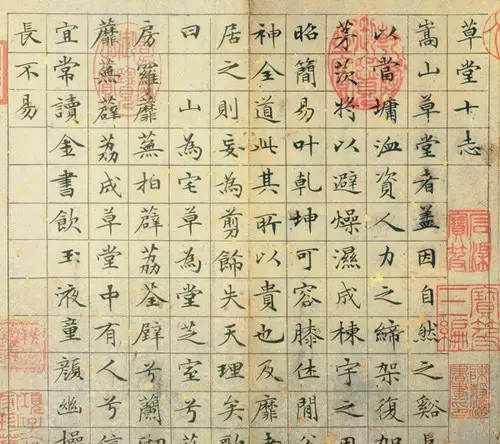 草堂十志
嵩山草堂者盖因自然之谿
以當墉洫資人力之締架復加
茅茨将以避燥濕成棟宇之
昭簡易叶乾坤可容膝休閒
神全道此其所以貴也及靡
居之則妄為剪飾失天理矣歌
曰 山為宅草為堂芝室兮
房羅蘼蕪柏薜荔荃壁兮蘭砌
蘼蕪薜荔成草堂中有人兮信
宜常讀金書飲玉液童顏幽操
長不易